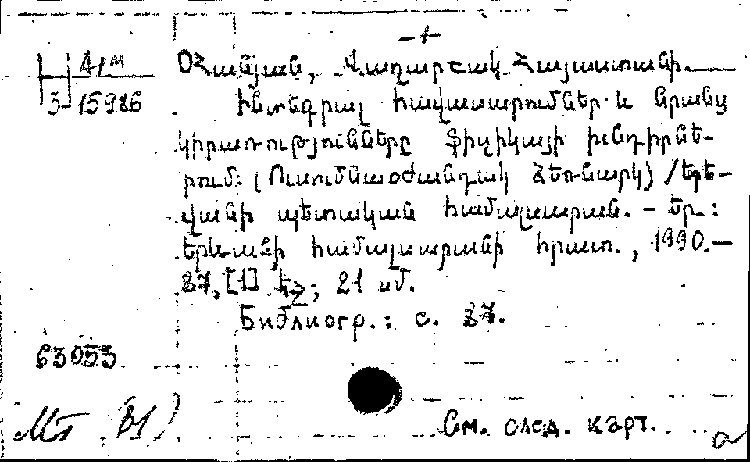 Арм
3-15986
Օհանյան, Վաղարշակ Հայաստանի.
Ինտեգրալ հավասարումներ և նրանց
կիրառությունները ֆիզիկայի խնդիրնե-
րում: (Ուսումնաօժանդակ ձեռնարկ) /Երե-
վանի պետական համալսարան. - Եր.:
Երևանի համալսարանի հրատ., 1990.—
87, [1] էջ; 21 սմ.
Библиогр.: с. 87.
63053
См. след. карт.